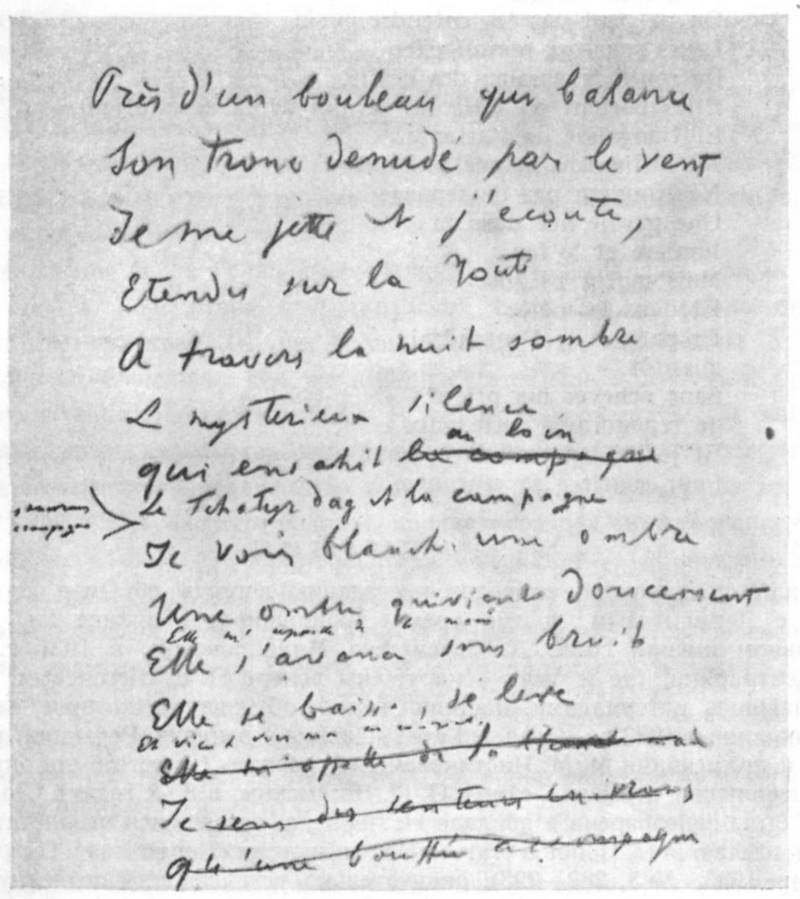 Près d'un bouleau qui balance
Son tronc denudé par le vent
Je me jette et j'ecoute,
Etendu sur la route
A travers la nuit sombre
Le mysterieux silence
au loin
qui envahit la campagne
Le Tchatyr dag et la campagne
campagne
Je vois blanche une ombre
Une ombre qui vient doucement
Elle m'apporte
Elle s'avance sans bruit
Elle se baisse, se leve
Elle m'apporte
Je sens des senteurs
Qu'une bouffée de campagne